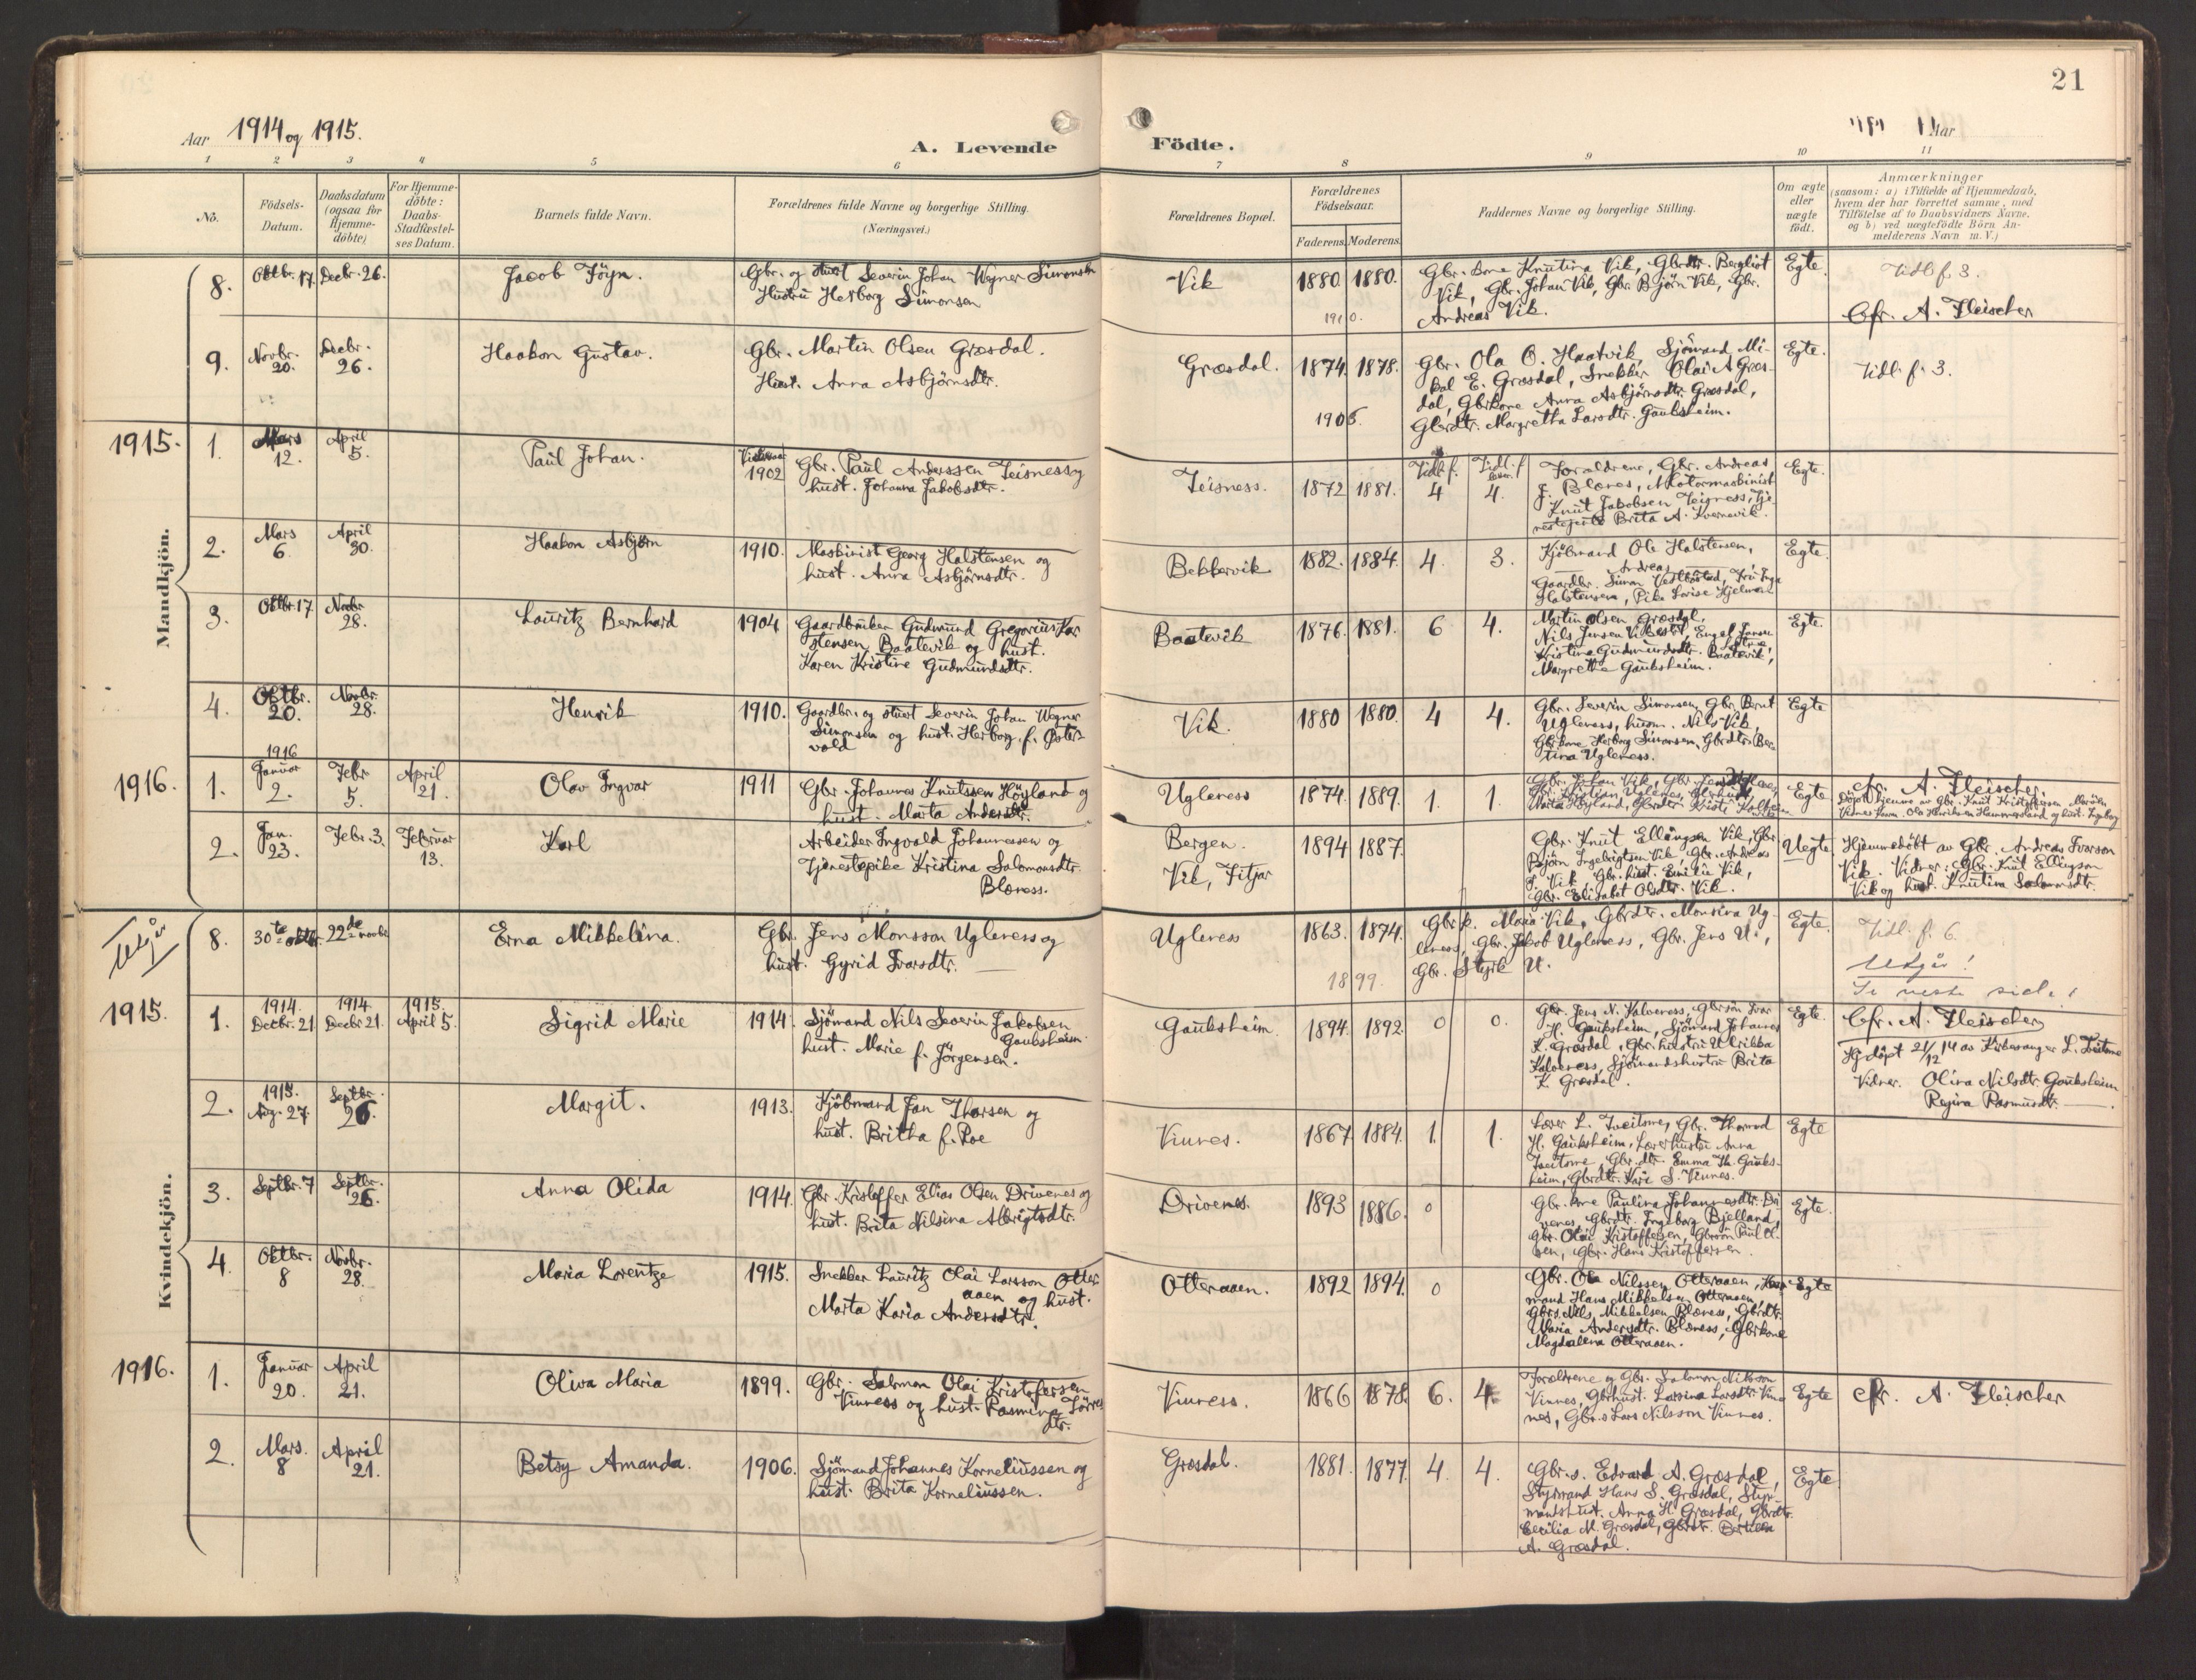 21
Aar 1914 og 1915.
A. Levende Födte.
Aar
1 2 3 4 5 6 7 8 9 10 11
No.
Födsels-Datum.
Daabsdatum (ogsaa for Hjemme-döbte)
For Hjemme-döbte: Daabs-Stadfæstel-ses Datum.
Barnets fulde Navn.
Forældrenes fulde Navne og borgerlige Stilling.
(Næringsvei.)
Forældrenes Bopæl.
Forældrenes Födselsaar.
Faderens. Moderens.
Faddernes Navne og borgerlige Stilling.
Om ægte eller uægte födt.
Anmærkninger
(saasom: a) i Tilfælde af Hjemmedaab,
hvem der har forrettet samme, med
Tilföielse af to Daabsvidners Navne,
og b) ved uægtefödte Börn An-
melderens Navn m. V.)
Mandkjön.
8. Oktbr. 17. Decbr. 26. Jacob Föyn. Gbr. og stuert Severin Johan Wegner Simonsen
Hustru Herborg Simonsen
Vik 1880. 1880. 1910.
Gbr. kone Knutina Vik, Gbrdtr. Bergliot
Vik, Gbr. Johan Vik, Gbr. Björn Vik, Gbr.
Andreas Vik.
Egte. Tidl. f. 3.
Cfr. A. Fleischer
9. Novbr. 20. Decbr. 26. Haakon Gustav. Gbr. Martin Olsen Græsdal.
Hust. Anna Asbjörnsdtr.
Græsdal. 1874. 1878. 1906.
Gbr. Ola O. Haatvik, Sjömand Mi-
kal E. Græsdal, Snekker Olai A Græs-
dal, Gbrkone Anna Asbjörnsdtr. Græsdal,
Gbrdtr. Margretha Larsdtr. Gauksheim.
Egte. Tidl. f. 3.
1915. 1. Mars 12. April 5. Paul Johan. 1902 Gbr. Paul Anderssen Teisness og
hust. Johanna Jakobsdtr.
Teisness. 1872 1881. Tidl. f. 4 Tidl. f. 4.
Forældrene, Gbr. Andreas
J. Blænes, Motormaskinist
Knut Jakobsen Teigness, Tje-
nestejente Brita A. Kvernevik.
Egte.
2. Mars 6. April 30. Haakon Asbjörn 1910. Maskinist Georg Halstensen og
hust. Anna Asbjörnsdtr.
Bekkervik 1882. 1884. 4. 3.
Kjöbmand Ole Halstensen,
Andreas
Gaardbr. Simon Vestböstad, Fru Inga
Halstensen, Pike Lovise Hjelmen
Egte.
3. Oktbr. 17 Novbr. 28. Lauritz Bernhard 1904 Gaardbruker Gudmund Gregorius Kar
stensen Baatevik og hust.
Karen Kristine Gudmundsdtr.
Baatevik 1876. 1881. 6 4.
Martin Olsen Græsdal,
Nils Jensen
Kristina Gudmundsdtr. Baatevik,
Margrethe Gauksheim.
Egte.
4. Oktbr. 20. Novbr. 28. Henrik 1910. Gaardbr. og stuert Severin Johan Wegner
Simonsen og hust. Herborg f. Öster-
vold
Vik. 1880 1880. 4 4.
Gbr. Severin Simonsen, Gbr. Bernt
Ugleness, husm. Nils Vik,
Gbrkone Herborg Simonsen, Gbrdtr. Ber-
tina Ugleness.
Egte
1916. 1. 1916 Januar 2. Febr. 5. April 21. Olav Ingvar 1911 Gbr. Johannes Knutssen Höyland og
hust. Marta Andersdtr.
Ugleness 1874. 1889. 1. 1.
Gbr. Johan Vik, Gbr. Jens Uglenes
Gbr. Kristian Uglenes, Gbrhust.
Marta Höyland, Gbrdtr. Kristi
Egte cfr. A. Fleischer.
Döpt hjemme av Gbr. Knut Kristoffersen
Ola Henriksen Hammersland og hust. Ingeborg
2. Jan. 23. Febr. 3. Februar 13. Karl Arbeider Ingvald Johannessen og
Tjenestepike Kristina Salomonsdtr.
Blæness.
Bergen. 1894 1887.
Vik, Fitjar
Gbr. Knut Ellingsen Vik, Gbr
Björn Ingebrigtsen Vik, Gbr. Andreas
J. Vik Gbr. hust. Emilie Vik,
Gbr. Elisabet Olsdtr. Vik.
Uegte Hjemmedöbt av Gbr. Andreas Ivarson
Vik. Vidner: Gbr. Knut Ellingsen
Vik og hust. Knutina Salomonsdtr.
Kvindekjön.
Utgår
8. 30te oktbr. 22de novbr Erna Mikkelina. Gbr. Jens Monsson Ugleness og
hust. Gyrid Ivarsdtr.
Ugleness 1863. 1874. 1899.
Gbr.k. Maria Vik, Gbrdtr. Monsina Ug-
leness, Gbr. Jakob Ugleness, Gbr. Jens U.,
Gbr. Styrk U.
Egte. Tidl. f. 6.
Utgår!
Se neste side!
1915. 1. 1914. Decbr. 21 1914 Decbr 21. 1915. April 5. Sigrid Marie 1914. Sjömand Nils Severin Jakobsen
Gauksheim
hust. Marie f. Jörgensen.
Gauksheim. 1894. 1892. 0 0.
Gbr. Jens N. Kalveness, Gbr.sön Ivar
H. Gauksheim, Sjömand Johannes
K. Græsdal, Gbr. hustru Ulrikka
Kalveness, Sjömandshustru Brita
K. Græsdal.
Egte. Cfr. A. Fleischer
Hj.döpt 21/12 14 av Kirkesanger L. Tveitsme
Vidner. Olina Nilsdtr. Gauksheim
Regina Rasmusdtr. —
2. 1915. Aug. 27. Septbr. 26. Margit. 1913. Kjöbmand Jan Thorsen og
hust. Britha f. Roe
Vinnes. 1867 1884. 1. 1.
Lærer L. Tveitsme, Gbr. Thormod
H. Gauksheim, Lærerhustru Anna
Tveitsme, Gbr.dtr. Emma Th. Gauks-
heim, Gbrdtr. Kari S. Vinnes.
Egte
3. Septbr. 7 Septbr. 26. Anna Olida 1914. Gbr. Kristoffer Elias Olsen Drivenes og
hust. Brita Nilsina Albrigtsdtr.
Drivenes. 1893 1886. 0
Gbr.kone Paulina Johannesdtr. Dri
venes, Gbrdtr. Ingeborg Bjelland,
Gbr. Olai Kristoffersen, Gbrsön Paul Ol-
sen, Gbr. Hans Kristoffersen.
Egte.
4. Oktbr. 8 Novbr. 28. Maria Lorentze 1915. Snekker Lauritz Olai Larsson Otter
aaen og hust.
Marta Karia Andersdtr.
Otteraaen. 1892 1894. 0
Gbr. Ola Nilssen Otteraaen,
mand Hans Mikkelsen Otteraaen,
Gbrs. Nils Mikkelsen Blæness, Gbrdtr.
Maria Andersdtr. Blæness, Gbrkone
Magdalena Otteraaen.
Egte
1916. 1. Januar 20. April 21. Oliva Maria 1899. Gbr. Salomon Olai Kristofersen
Vinness og hust. Rasmine
dtr.
Vinness. 1866 1878. 6. 4
Forældrene og Gbr. Salomon Nilsson
Vinnes, Gbrhust. Larsina Larsdtr. Vin-
nes, Gbr.s Lars Nilsson Vinnes.
Egte cfr. A. Fleischer
2. Mars. 8 April 21. Betsy Amanda. 1906. Sjömand Johannes Korneliussen og
hust. Brita Korneliussen.
Græsdal. 1881. 1877. 4. 4.
Gbr.s. Edvard A. Græsdal,
Styrmand Hans S. Græsdal, Styr-
mandshust. Anna H. Græsdal, Gbrdtr.
Cecilia M. Græsdal, Gbrdtr. Bertilda
A. Græsdal.
Egte